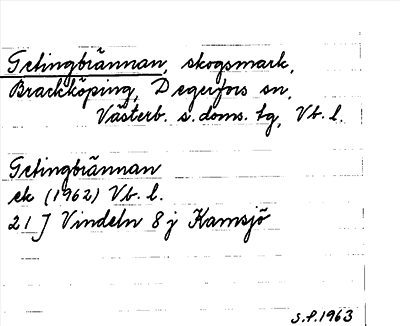 Getingbrännan, skogsmark,
Brackköping, Degerfors sn,
Västerb. s. doms. tg, Vb. l.
Getingbrännan
ek (1962) Vb. l.
21 J Vindeln 8 j Kamsjö
S.P. 1963